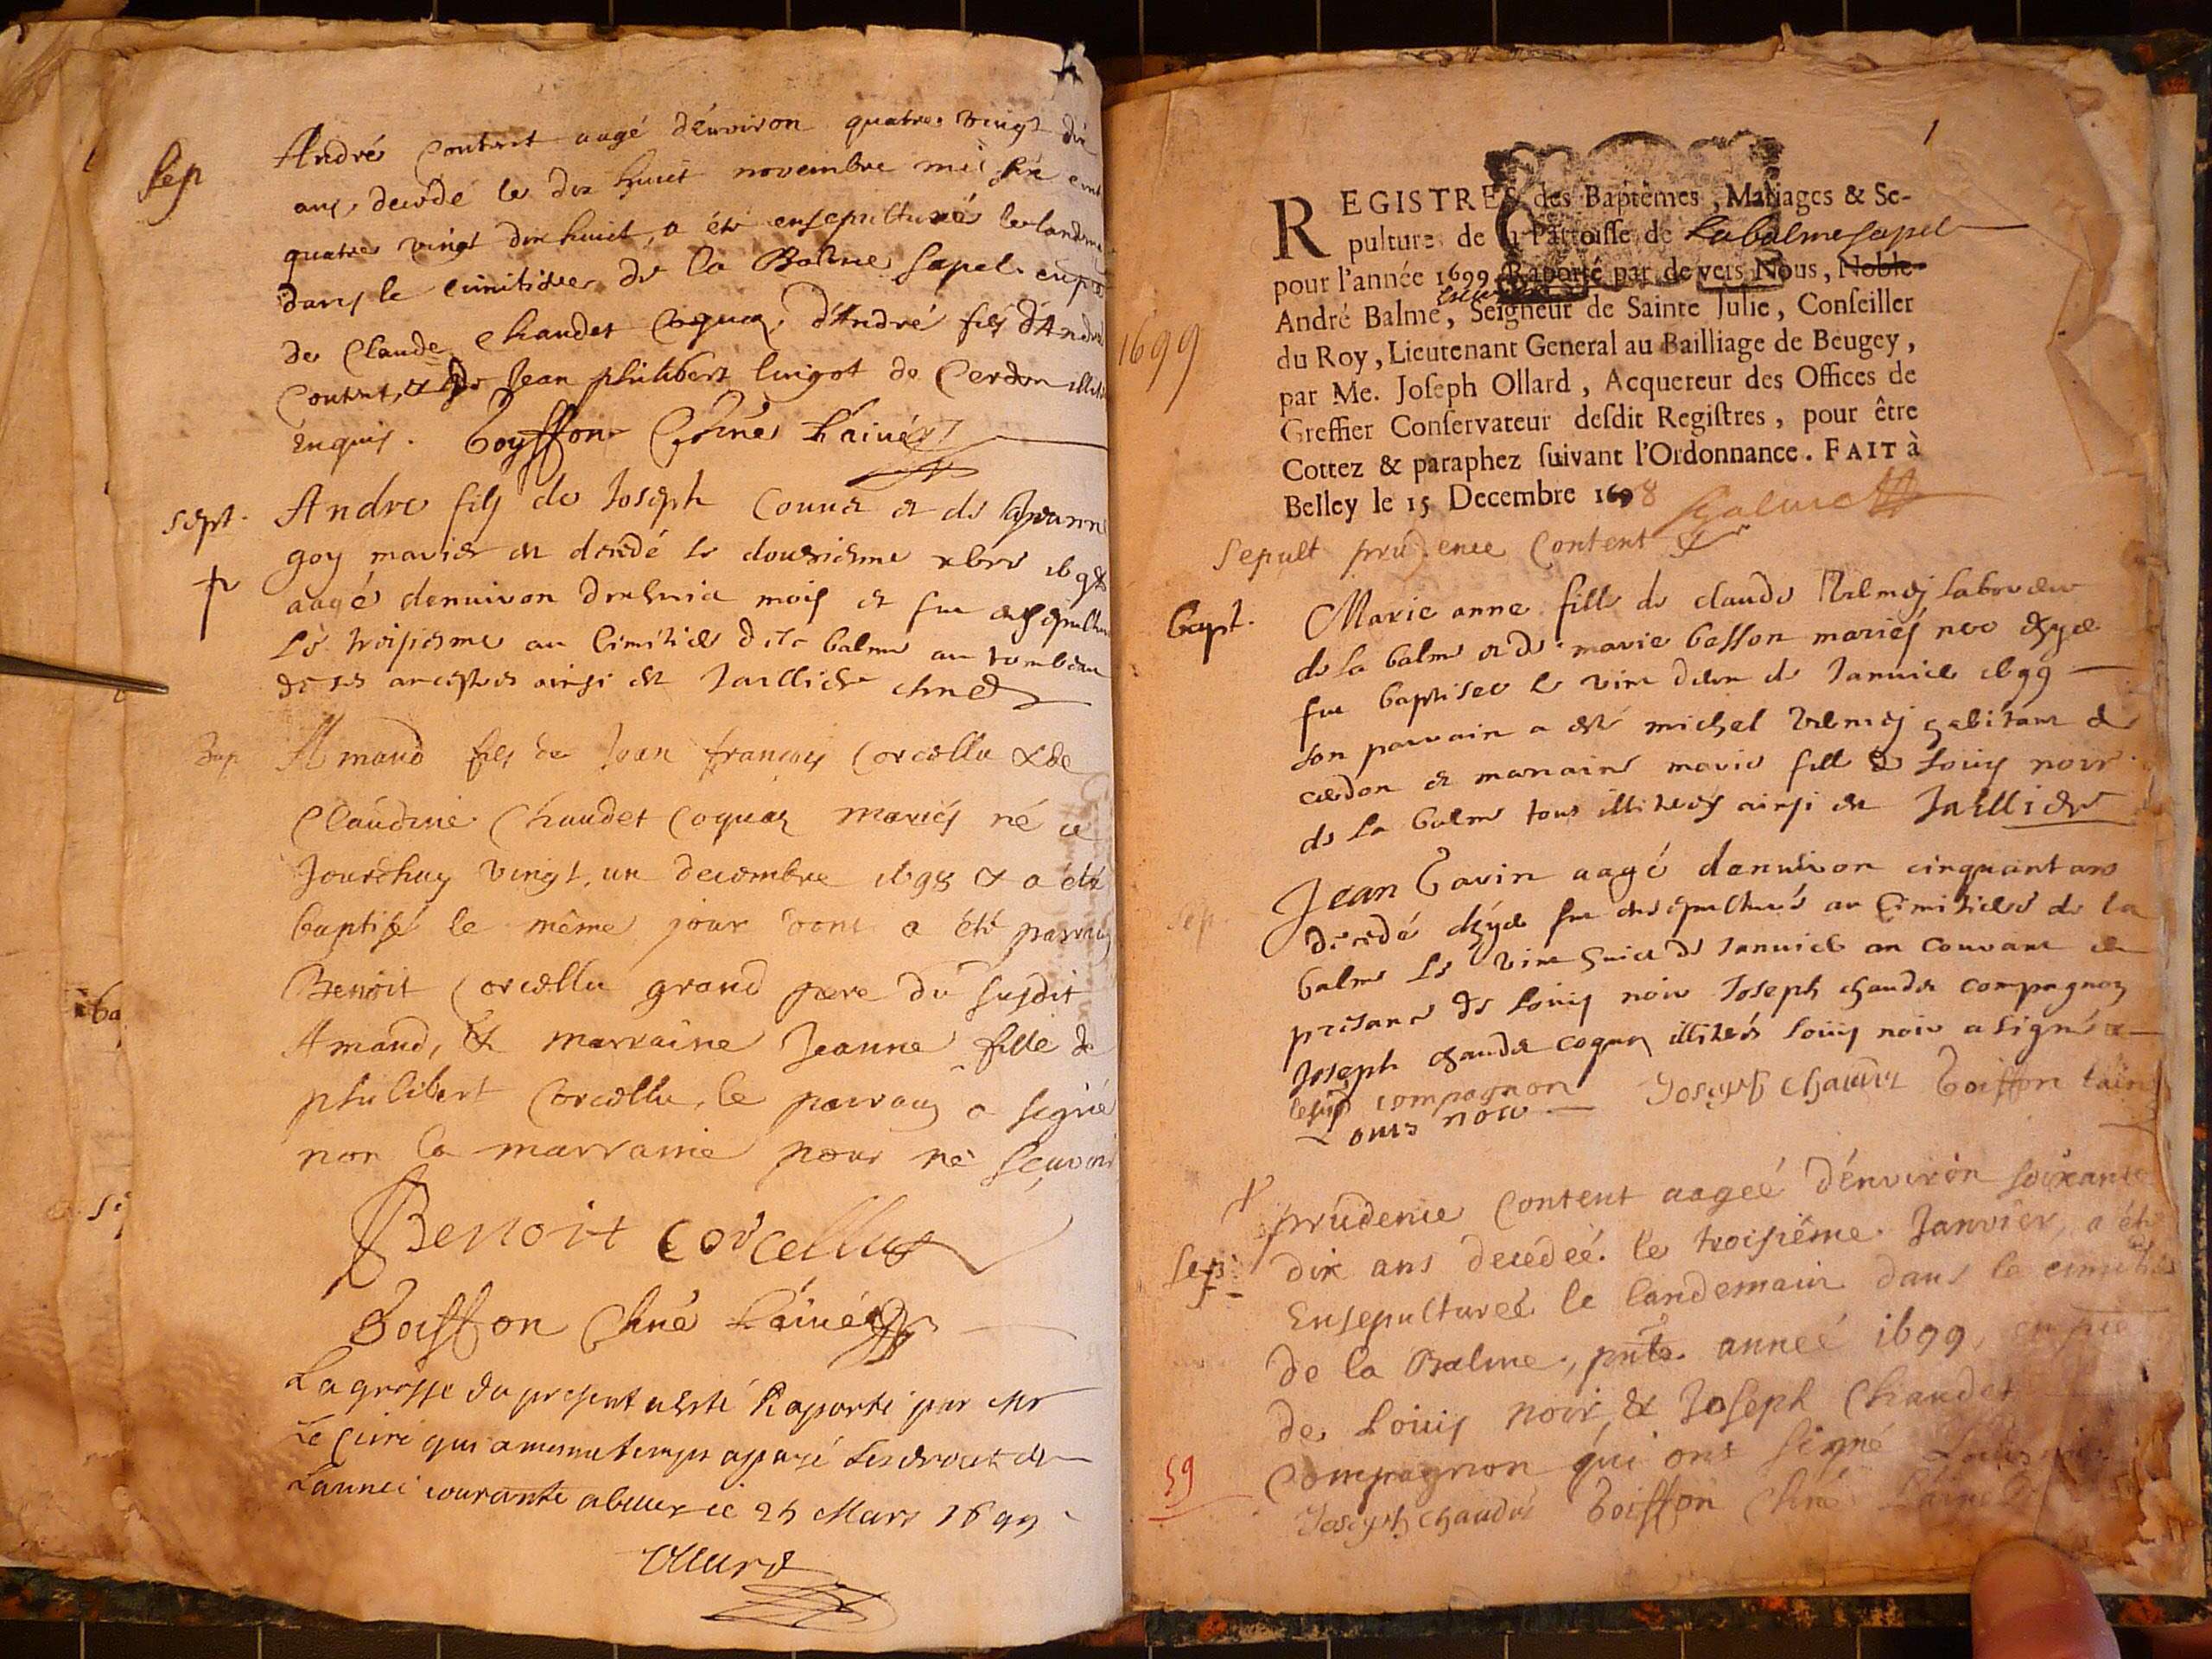 Sep
André Contret aagé d'environ quatre vingt dix
ans, decédé le dix huict novembre mil six cent
quatre vingt dix huict, a été ensepulturé le landm
dans le cimitiere de la Balme Sapel en
de Claude Chaudet Coquaz, d'André fils d'André
Contret, & de Jean philibert luigot de Cerdon
enquis. Boysson Curé L'ainé
Sept.
Andre fils de Joseph
goy mariés est decedé le dousiesme xbre 1698
aagé denuiron mois et fut
le troisiesme au Cimitiere de la balme au tombeau
de ses ancestres ainsi est Juillier
Bap
Amand fils de Jean françois Corcellu & de
Claudine Chaudet Coquaz mariés né ce
Jourdhuy vingt, un decembre 1698 & a été
baptisé le même jour dont a été parrain
Benoit Corcellu grand pere du susdit
Amand, & marraine Jeanne fille de
philibert Corcellu, le parrain a signé
non la marraine pour ne sçavoir
Benoit Corcellus
Boisson Curé L'ainé
La grosse du present a esté Raporté par Mr
Le Curé qui a mesme temps apayé les droict de
L'année courante a belley ce 25 Mars 1699
Ollard
1
REGISTRES des Baptêmes, Mariages & Se-
pulture de la Parroisse de Labalmesapel
pour l'année 1699 Raporté par devers Nous, Noble
André Balme, Seigneur de Sainte Julie, Conseiller
du Roy, Lieutenant General au Bailliage de Beugey,
par Me. Joseph Ollard, Acquereur des Offices de
Greffier Conservateur desdit Registres, pour être
Cottez & paraphez suivant l'Ordonnance. FAIT à
Belley le 15 Decembre 1698 Balme
1699
Sepult prudence Content
bapt.
Marie anne fille de claude
de la balme et de marie basson mariés nee
fut baptisee le vint de Januier 1699
son parrain a esté michel habitant de
cerdon et marraine marie fille de Louis noir
de la balme tous illiterés ainsi est Juillier
Sep
Jean Gavin aagé denuiron cinquant ans
decedé fut ensepulturé au Cimitiere de la
balme le vint huict de Januier
presence de Louis noir Joseph chaudet compagnon
Joseph chaudet coquaz illiterés Louis noir a signé &
lesusd compagnon Joseph Chaudet Boisson L'ainé
Louis noir
Sep:
prudence Content aageé d'environ soixante
dix ans decedeé le troisiême Janvier, a été
Ensepultureé le landemain dans le cimitiere
de la Balme, pnte anneé 1699
de Louis noir, & Joseph Chaudet
Compagnon qui ont signé Louis noir
59
Joseph chaudet Boisson Curé L'ainé